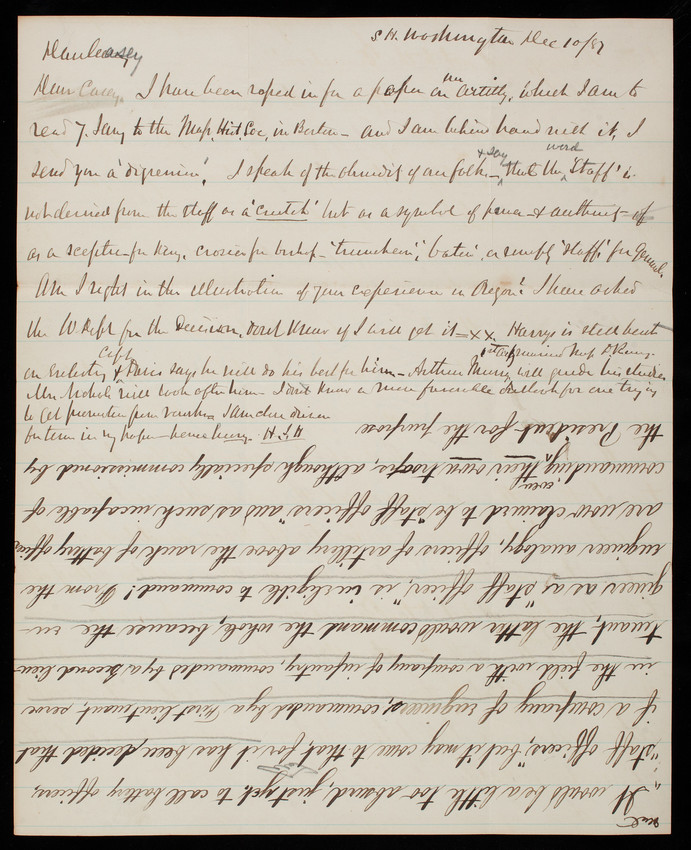 S H. Washington Dec 10/87
Dear Casey
Dear Casey. I have been roped in for a paper on our Artilly, which I am to
read 7. Jany to the Map. Hist. Soc, in Boston – and I am behind hand with it, I
send you a 'digression'. I speak of the absurdity of our folks – & say that the word 'Staff' is
not derived from the staff as a 'crutch' but as a symbol of power & authority – of
as a sceptre for King, crosier for bishop – 'truncheon', 'baton', or simply 'staff' for General.
Am I right in the illustration of your experience in Oregon? I have asked
the W Dept for the Decision, dont know if I will get it – x x Harry is still bent
on enlisting & Capt Davis says he will do his best for him – Arthur Murray 1st Arty will guide his studies
Mr. Nichols will look after him – I dont know a more favorable outlook for one trying
to get promotion from ranks – I am also driven
for time in my paper – hence hurry – H. J. H
"It would be a little too absurd, just yet to call battery officers,
"staff officers," but it may come to that, for it has been decided that
if a company of engineers, commanded by a First lieutenant, serve
in the field with a company of infantry, commanded by a second lieu-
tenant, the latter would command the whole, because the en-
gineer as a "staff officer," is ineligible to command! From the
engineer analogy, officers of artillery above the rank of battery officers
are now claimed to be "staff officers" and as such incapable of
commanding even their own troops, although specially commissioned by
the President for the purpose